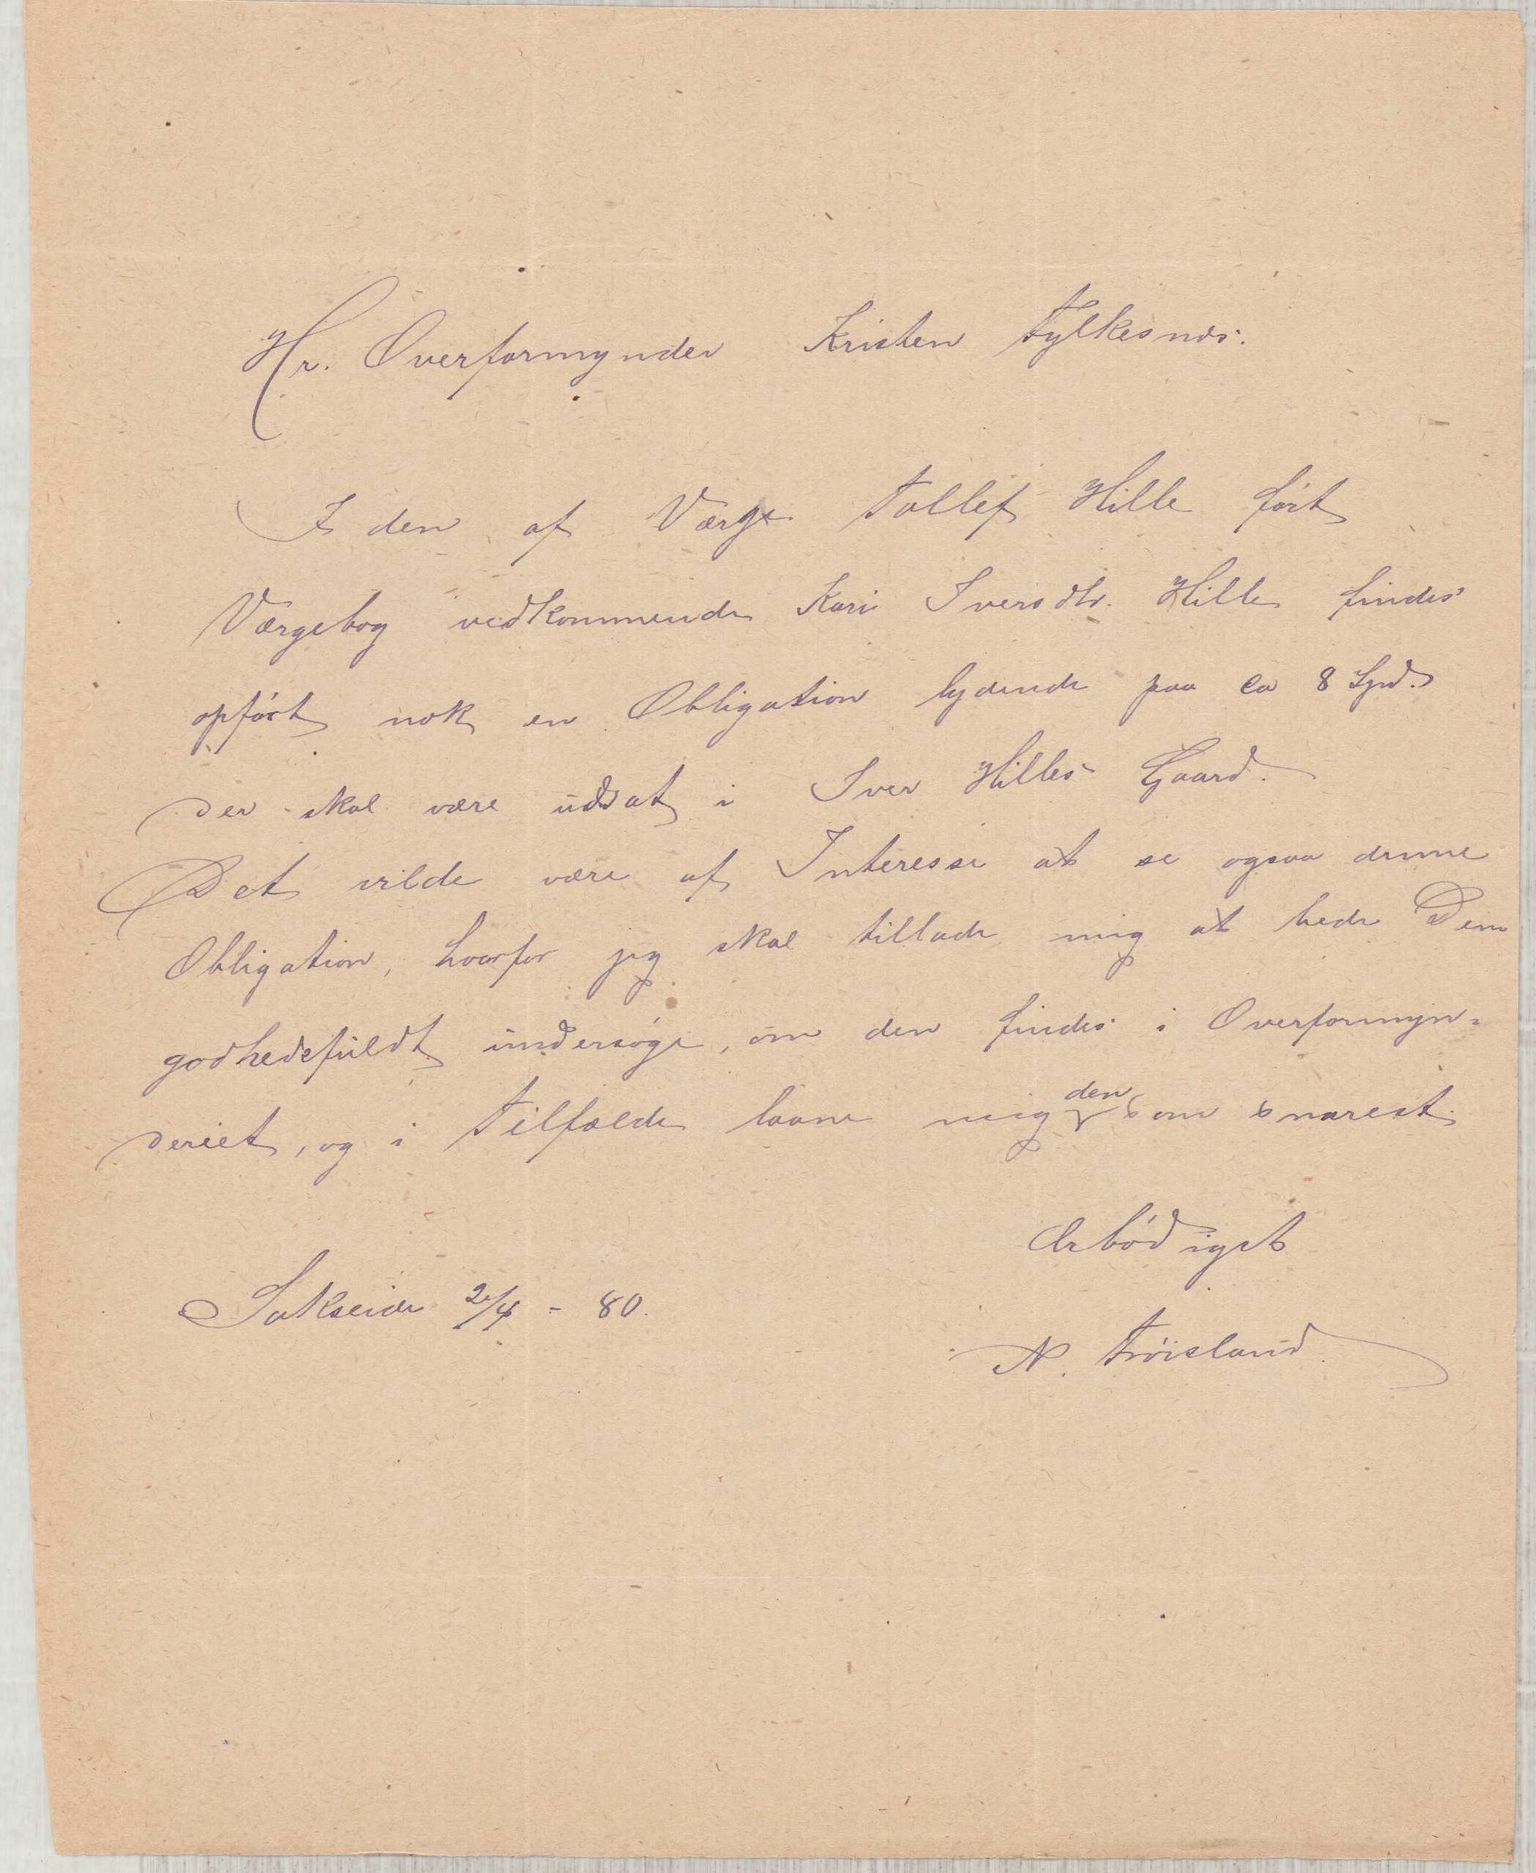 Hr. Overformynder Kristen Fylkesnes.
I den af Værge Tollef Hille ført
Værgebog vedkommende Kari Iversdtr. Hille findes
opført nok en Obligation lydende paa ca 8 Spd.
der skal være udsat i Iver Hilles Gaard.
Det vilde være af Interesse at se ogsaa denne
Obligation, hvorfor jeg skal tillade mig at bede Dem
godhedsfuldt undersøge, om den findes i Overformyn-
deriet, og i Tilfælde laane mig den som snarest.
Ærbødigst
Sakseide 2/4 - 80.
N. Trøisland